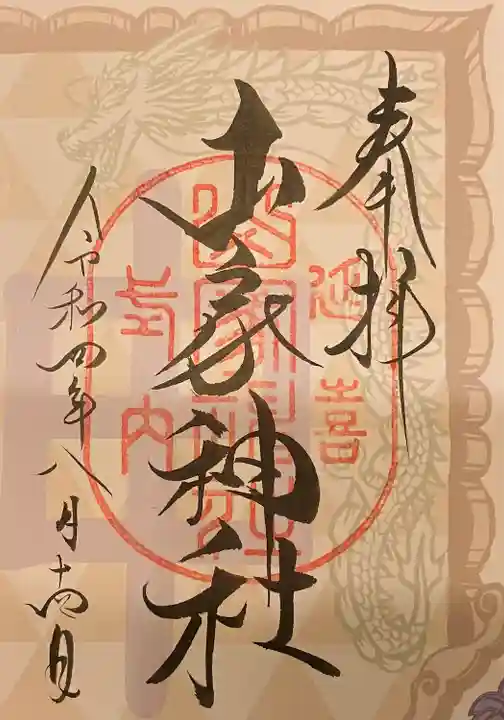 奉拝
延喜
山家神社
山家神社
式内
令和四年八月十四日